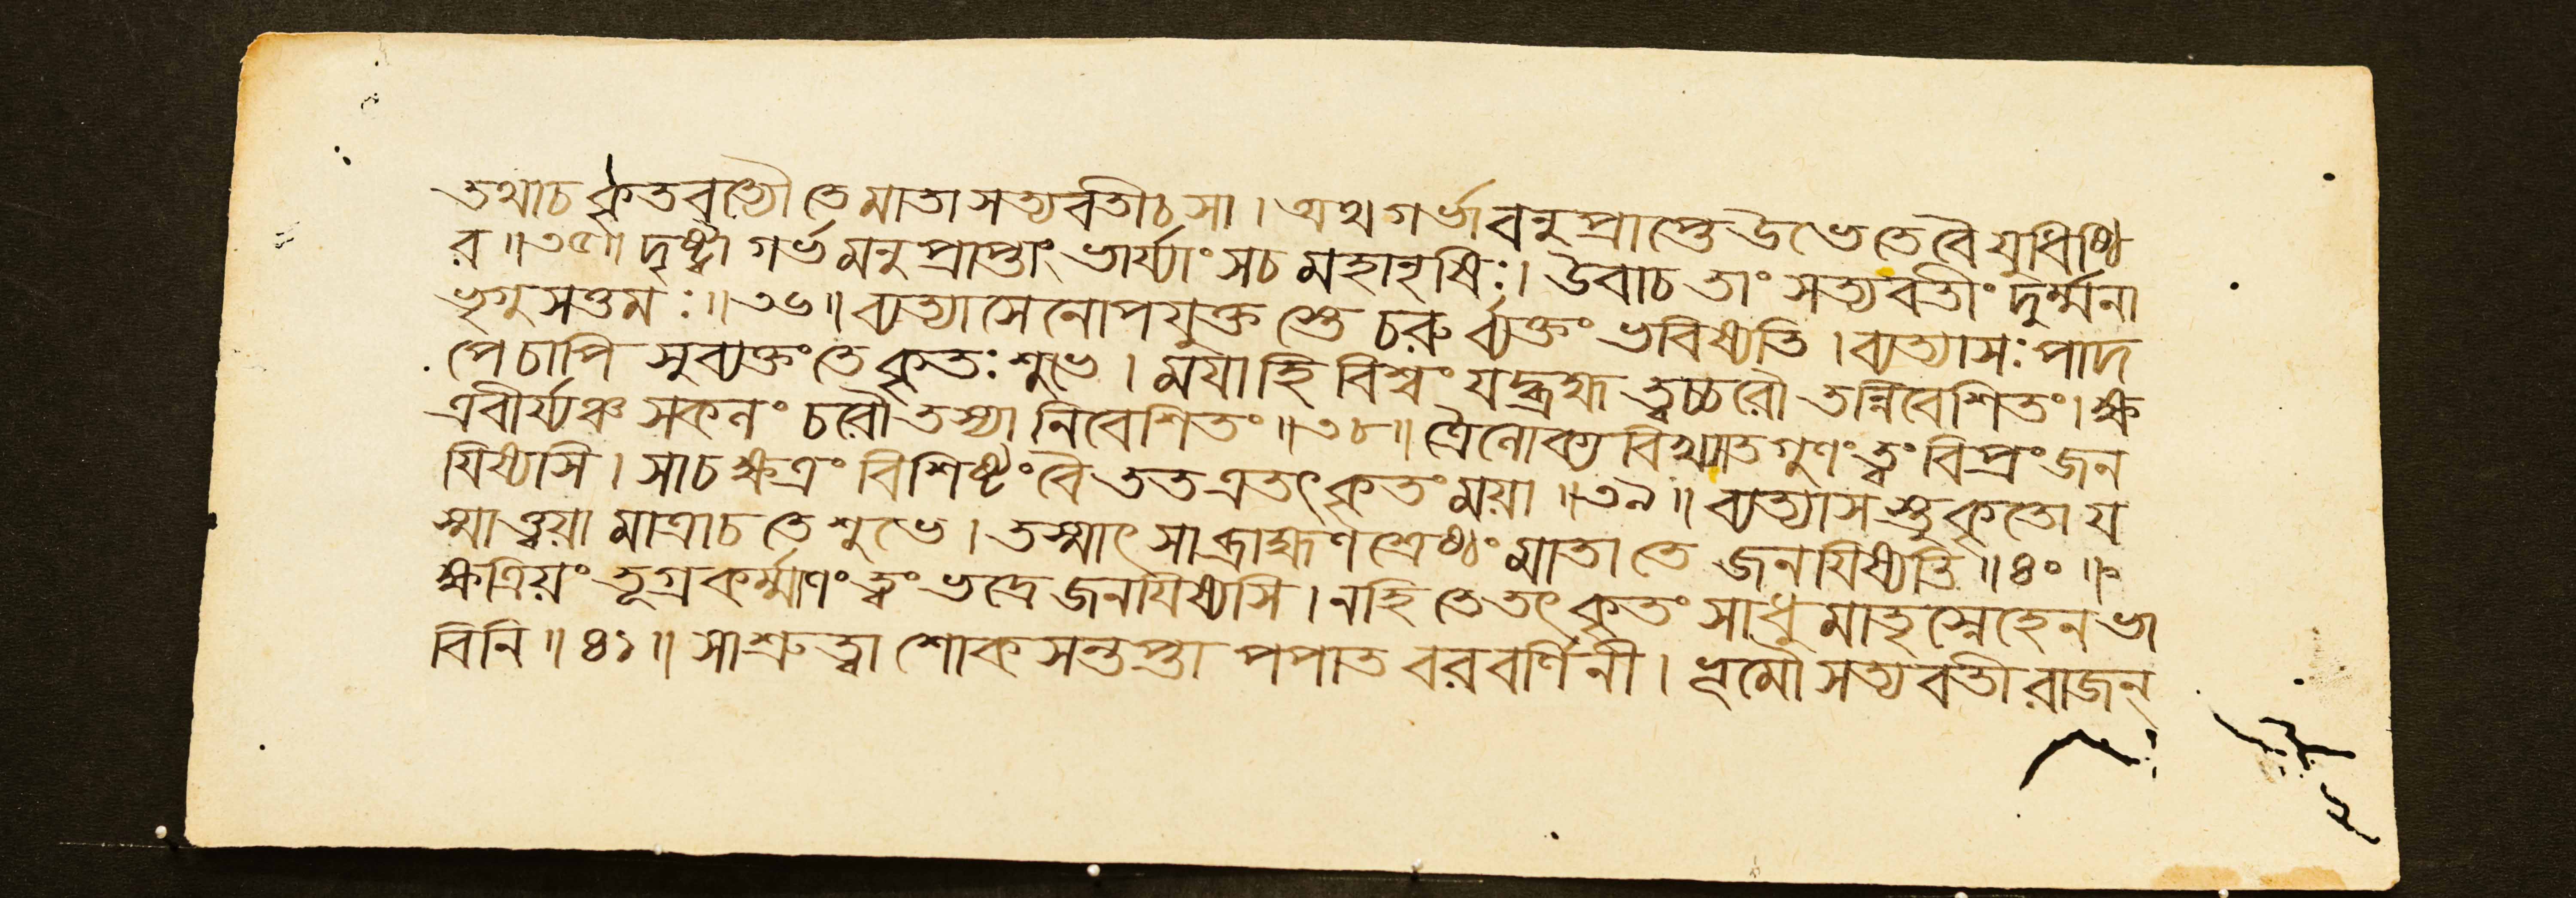 তথাচ কৃতবত্যৌ তে মাতা সত্যবতীচ সা । অথ গর্ভাবনুপ্রাপ্তে উভে তে বৈ যুধিষ্ঠি
র ॥ ৩৫ ॥ দৃষ্ট্বা গর্ভমনুপ্রাপ্তাং ভার্য্যাং সচ মহাঋষিঃ । উবাচ তাং সত্যবতীং দুর্ম্মনা
ভৃগুসত্তমঃ ॥ ৩৬ ॥ ব্যত্যাসেনোপযুক্তস্তে চরুর্ব্যক্তং ভবিষ্যতি । ব্যত্যাসঃ পাদ
পে চাপি সুব্যক্তং তে কৃতঃ শুভে । ময়া হি বিশ্বং যদ্ব্রহ্ম ত্বচ্চরৌ তন্নিবেশিতং । ক্ষ
ত্রবীর্য্যঞ্চ সকলং চরৌ তস্যা নিবেশিতং ॥ ৩৮ ॥ ত্রৈলোক্যবিখ্যাতগুণং ত্বং বিপ্রং জন
যিষ্যসি । সাচ ক্ষত্রং বিশিষ্টং বৈ তত এতৎ কৃতং ময়া ॥ ৩৯ ॥ ব্যত্যাসস্তু কৃতো য
স্মাত্ত্বয়া মাত্রাচ তে শুভে । তস্মাৎ সা ব্রাহ্মণশ্রেষ্ঠং মাতা তে জনযিষ্যতি ॥ ৪০ ॥
ক্ষত্রিয়ং তূগ্রকর্ম্মাণং ত্বং ভদ্রে জনযিষ্যসি । নহি তে তৎ কৃতং সাধু মাতৃস্নেহেন ভা
বিনি ॥ ৪১ ॥ সা শ্রুত্বা শোকসন্তপ্তা পপাত বরবর্ণিনী । ভূমৌ সত্যবতী রাজন্